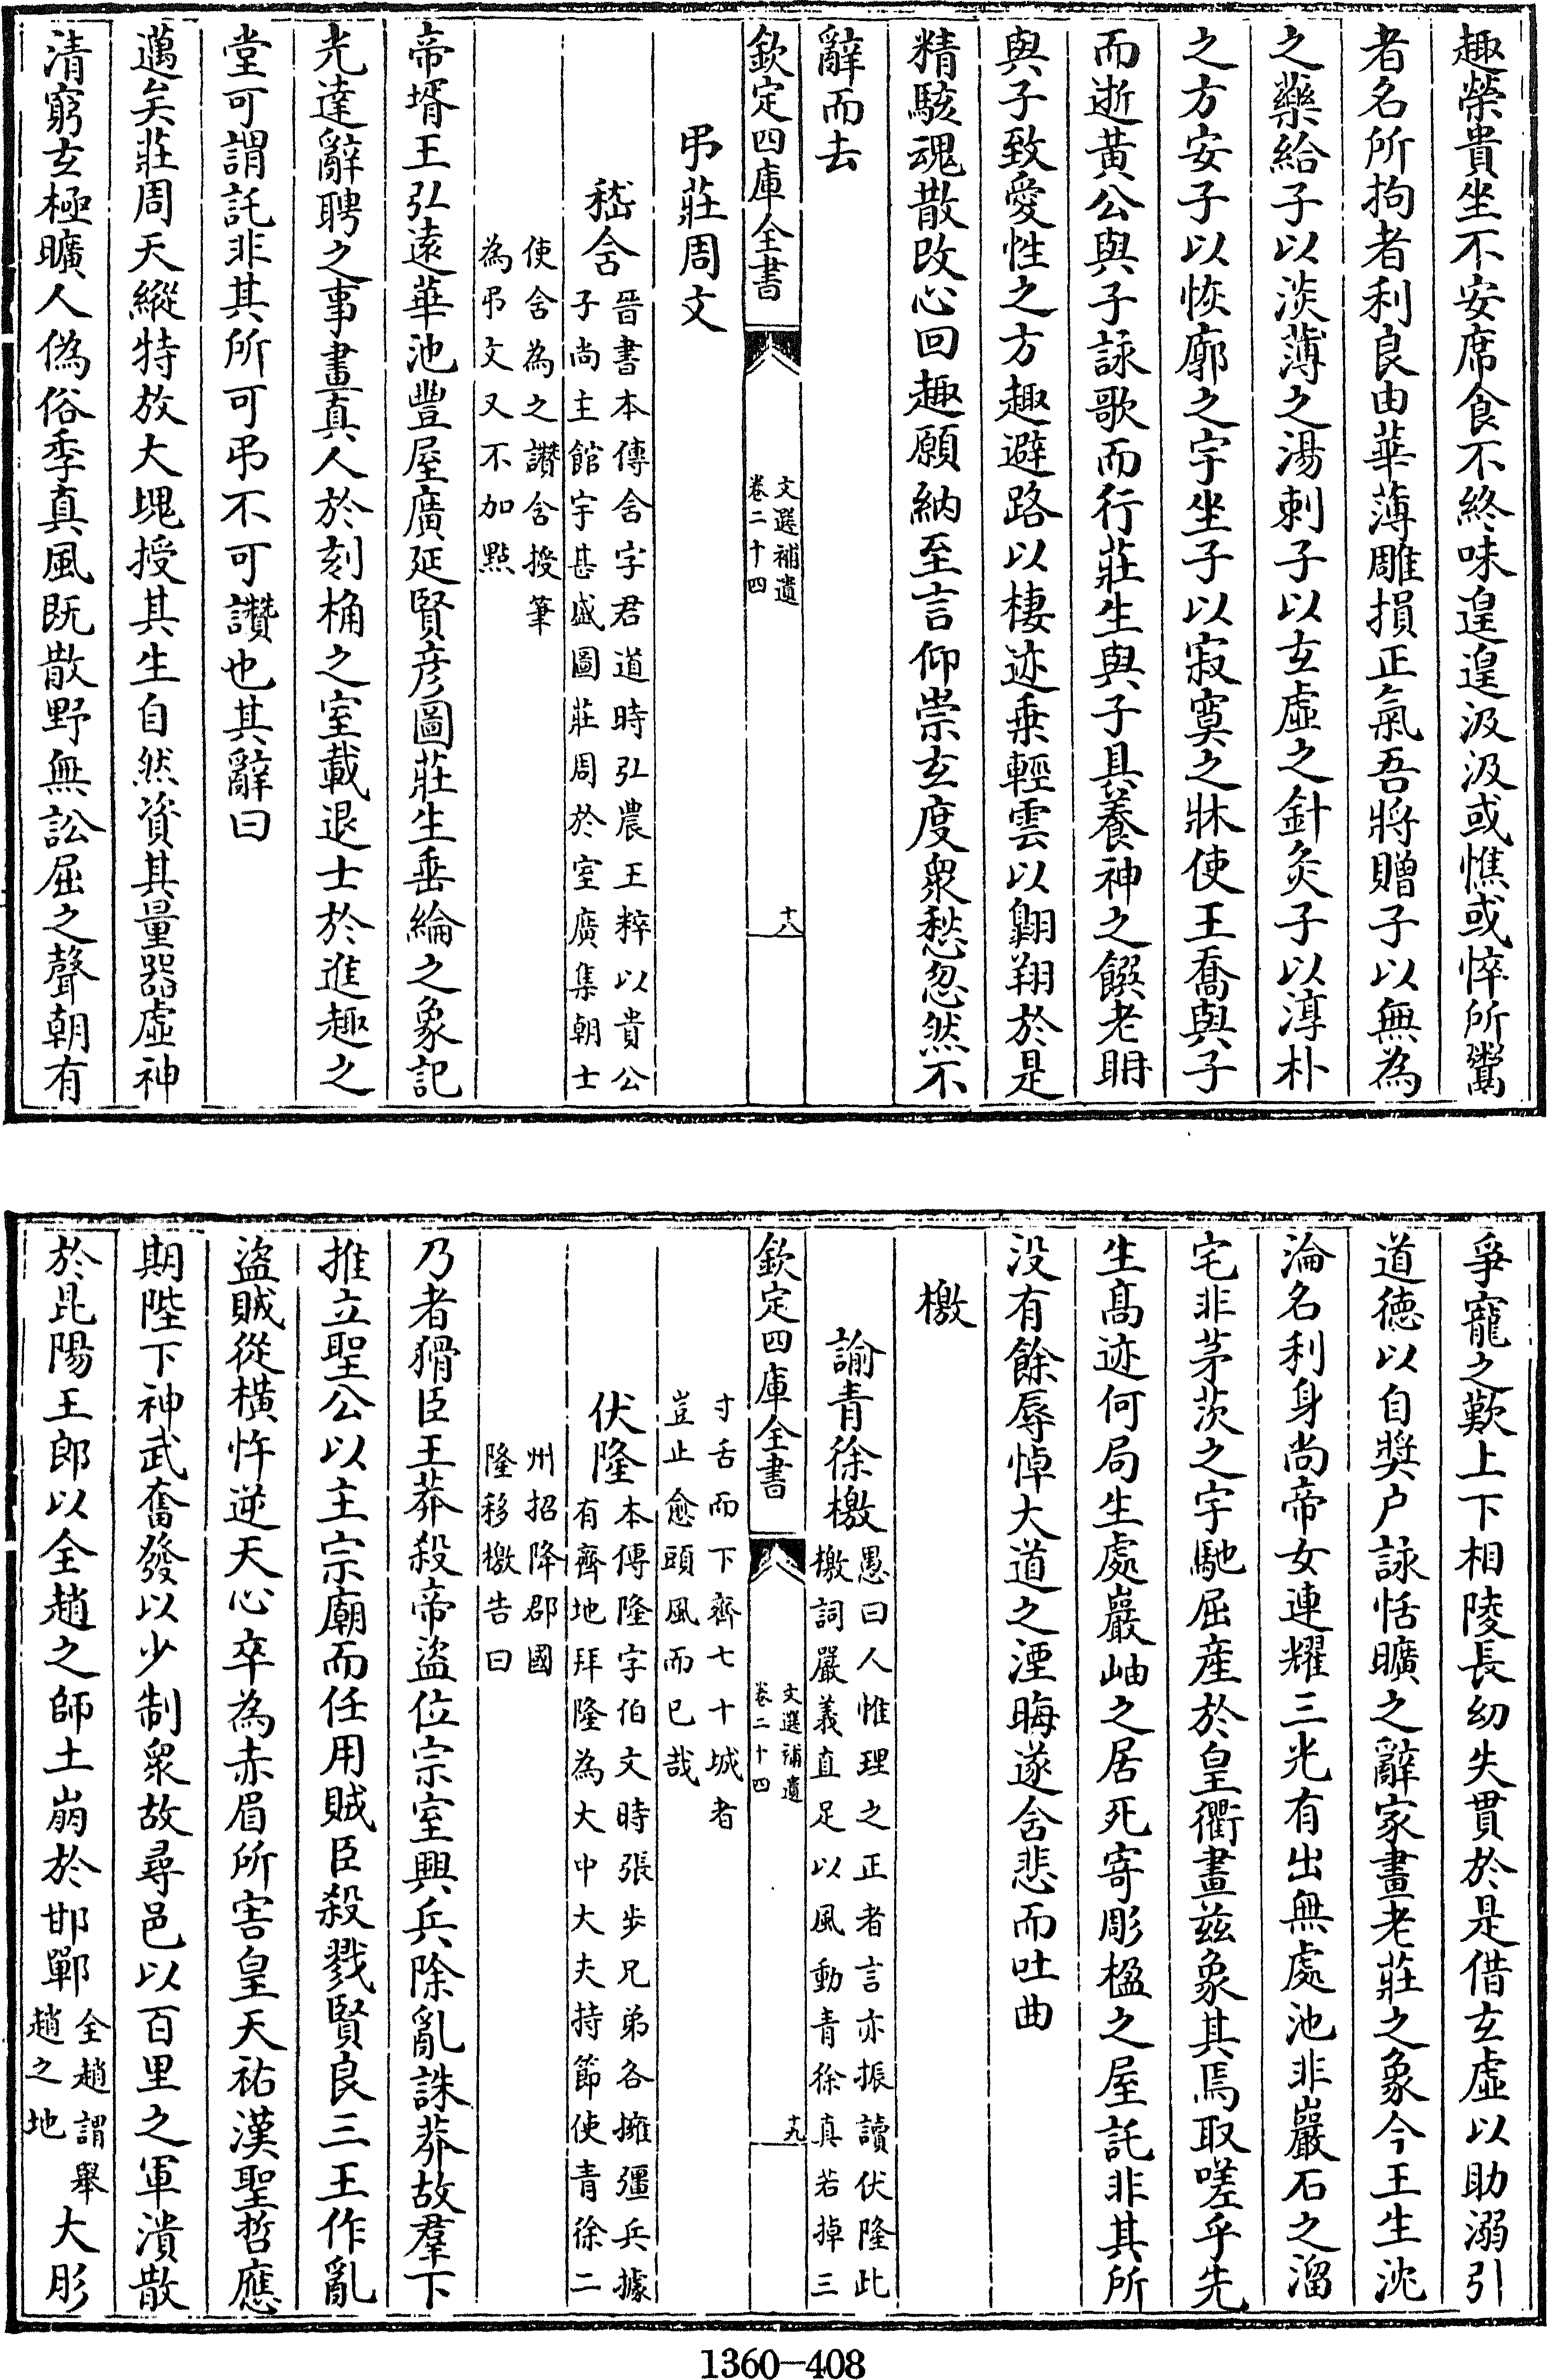 趣榮貴坐不安席食不終味遑遑汲汲或憔或悴所鬻
者名所拘者利良由華薄雕損正氣吾將贈子以無為
之藥給子以淡薄之湯刺子以玄虛之針灸子以淳朴
之方安子以恢廓之宇坐子以寂寞之牀使王喬與子
而逝黃公與子詠歌而行莊生與子具養神之饌老耼
與子致愛性之方趣避路以棲迹乗輕雲以翺翔於是
精駭魂散改心回趣願納至言仰崇玄度衆愁忽然不
辭而去
欽定四庫全書
文選補遺
卷二十四
十八
弔莊周文
嵇含晉書本傳含字君道時弘農王粹以貴公
子尚主館宇甚盛圖莊周於室廣集朝士
使含為之讚含授筆
為弔文文不加點
帝壻王弘遠華池豐屋廣延賢彦圖莊生垂綸之象記
先達辭聘之事畫真人於刻桷之室載退士於進趣之
堂可謂託非其所可弔不可讚也其辭曰
邁矣莊周天縱特放大塊授其生自然資其量器虛神
清窮玄極曠人偽俗季真風既散野無訟屈之聲朝有
爭寵之歎上下相陵長幼失貫於是借玄虛以助溺引
道徳以自奬户詠恬曠之辭家畫老莊之象今王生沈
淪名利身尚帝女連耀三光有出無處池非巖石之溜
宅非茅茨之宇馳屈産於皇衢畫茲象其焉取嗟乎先
生髙迹何局生處巖岫之居死寄彫楹之屋託非其所
没有餘辱悼大道之湮晦遂含悲而吐曲
檄
諭青徐檄愚曰人惟理之正者言亦振讀伏隆此
檄詞嚴義直足以風動青徐真若掉三
欽定四庫全書
文選補遺
卷二十四
十九
寸舌而下齊七十城者
豈止愈頭風而已哉
伏隆本傳隆字伯文時張步兄弟各擁彊兵據
有齊地拜隆為大中大夫持節使青徐二
州招降郡國
隆移檄告曰
乃者猾臣王莽殺帝盜位宗室興兵除亂誅莽故羣下
推立聖公以主宗廟而任用賊臣殺戮賢良三王作亂
盜賊從横忤逆天心卒為赤眉所害皇天祐漢聖哲應
期陛下神武奮發以少制衆故尋邑以百里之軍潰散
於昆陽王郎以全趙之師土崩於邯鄲全趙謂舉
趙之地大彤
1360—408